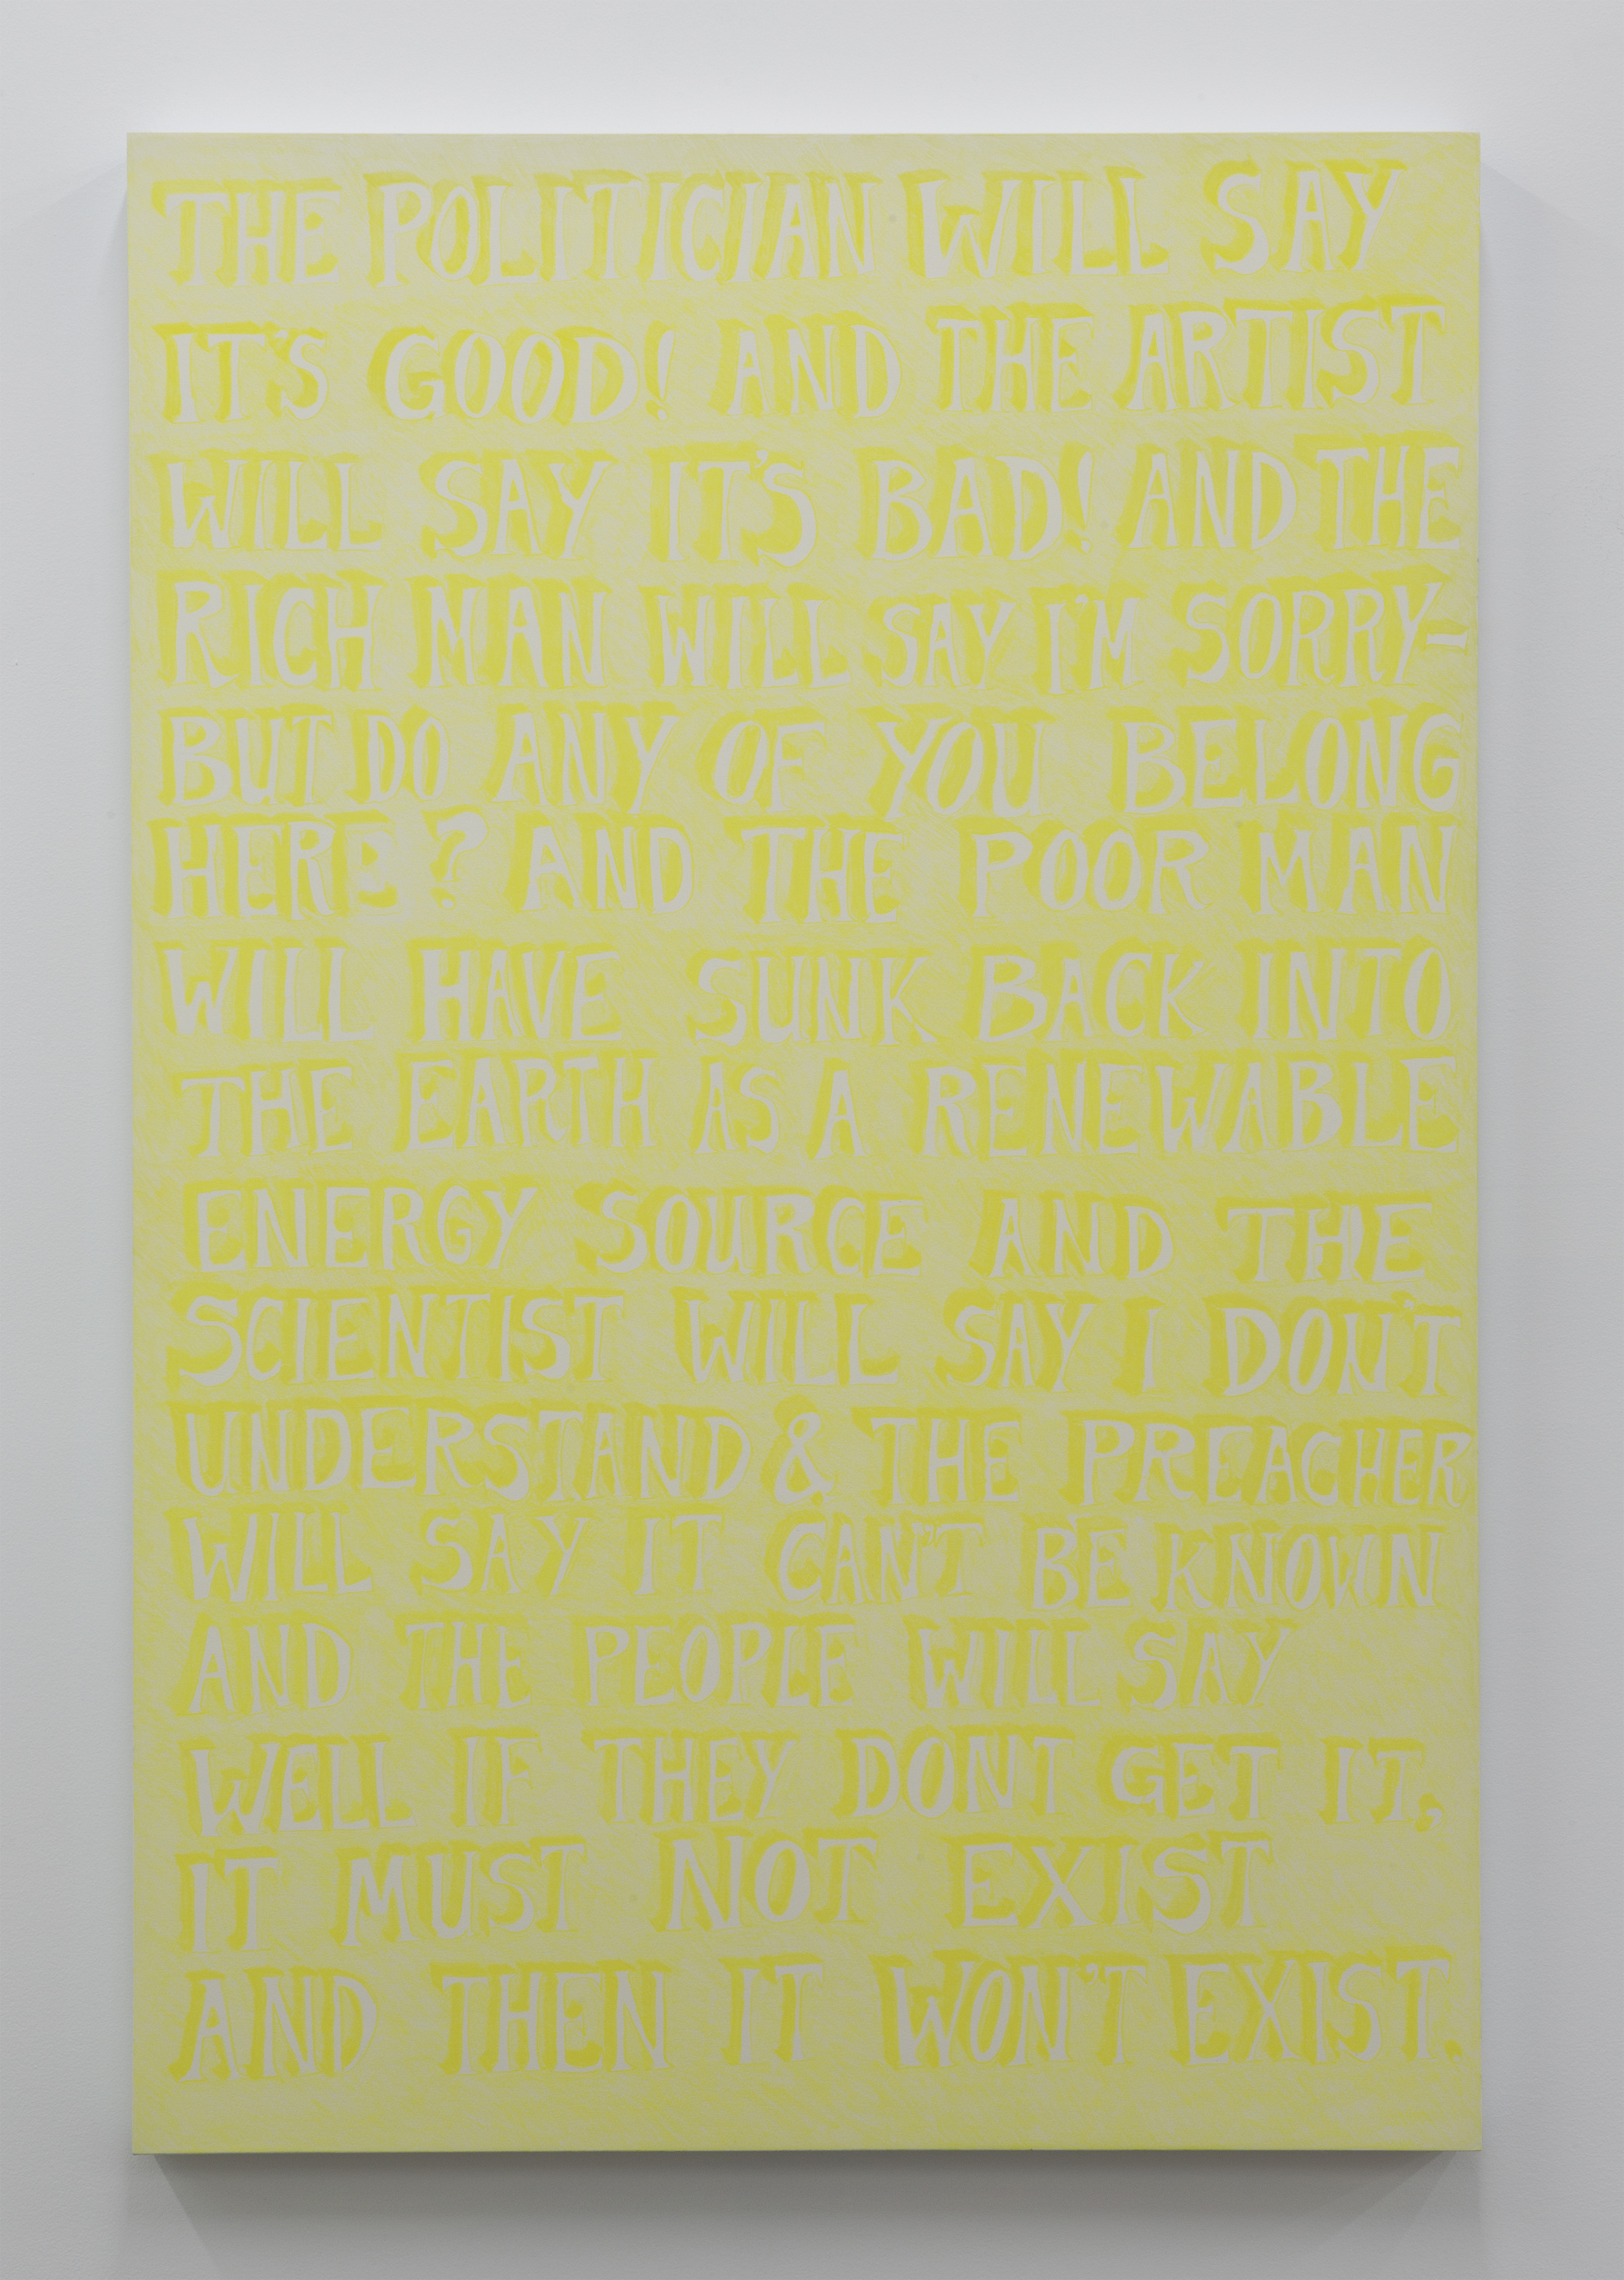 THE POLITICIAN WILL SAY
IT'S GOOD! AND THE ARTIST
WILL SAY IT'S BAD! AND THE
RICH MAN WILL SAY I'M SORRY-
BUT DO ANY OF YOU BELONG
HERE? AND THE POOR MAN
WILL HAVE SUNK BACK INTO
THE EARTH AS A RENEWABLE
ENERGY SOURCE AND THE
SCIENTIST WILL SAY I DON'T
UNDERSTAND & THE PREACHER
WILL SAY IT CAN'T BE KNOWN
AND THE PEOPLE WILL SAY
WELL IF THEY DONT GET IT,
IT MUST NOT EXIST
AND THEN IT WON'T EXIST.